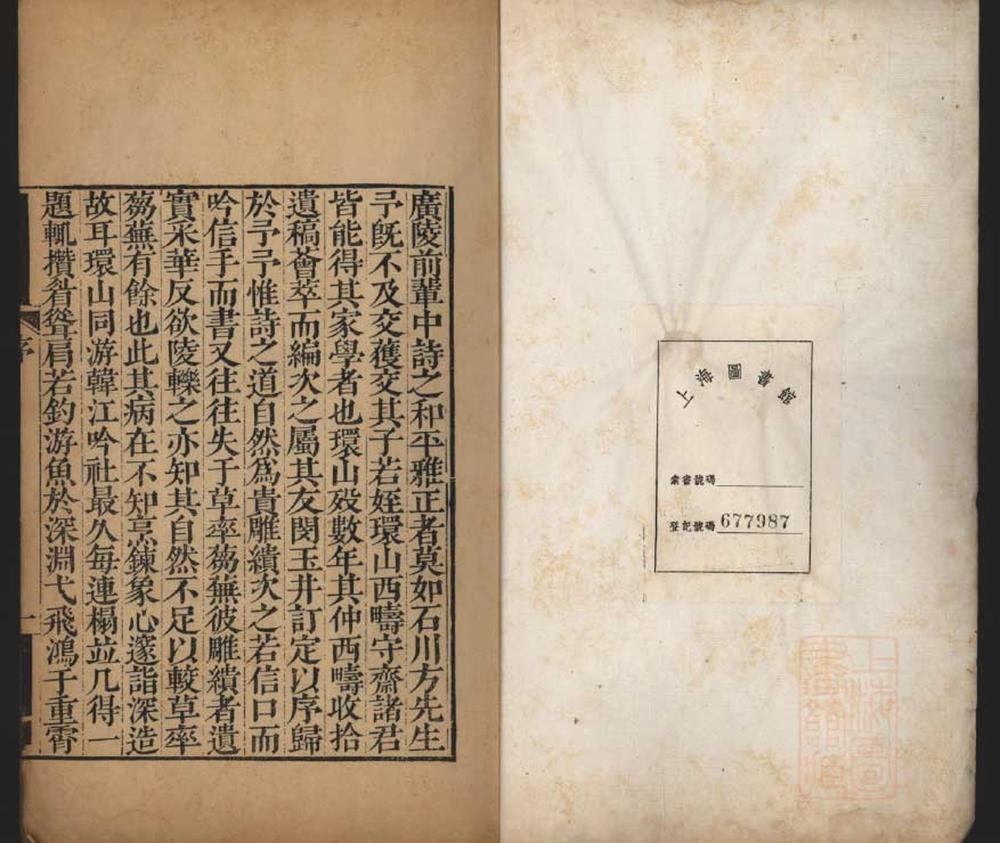 上海圖書館
索書號碼
登記號碼 677987
上海圖書館藏
廣陵前輩中詩之和平雅正者莫如石川方先生
予旣不及交獲交其子若姪環山西疇守齋諸君
皆能得其家學者也環山歿數年其仲西疇收拾
遺稿薈萃而編次之屬其友閔玉井訂定以序歸
於予予惟詩之道自然爲貴雕繢次之若信口而
吟信手而書又往往失于草率蕪彼雕繢者遺
實采華反欲陵轢之亦知其自然不足以較草率
蕪有餘也此其病在不知烹鍊象心邃詣深造
故耳環山同游韓江吟社最久每連榻並几得一
題輒攢眉聳肩若釣游魚於深淵弋飛鴻于重霄
序
一